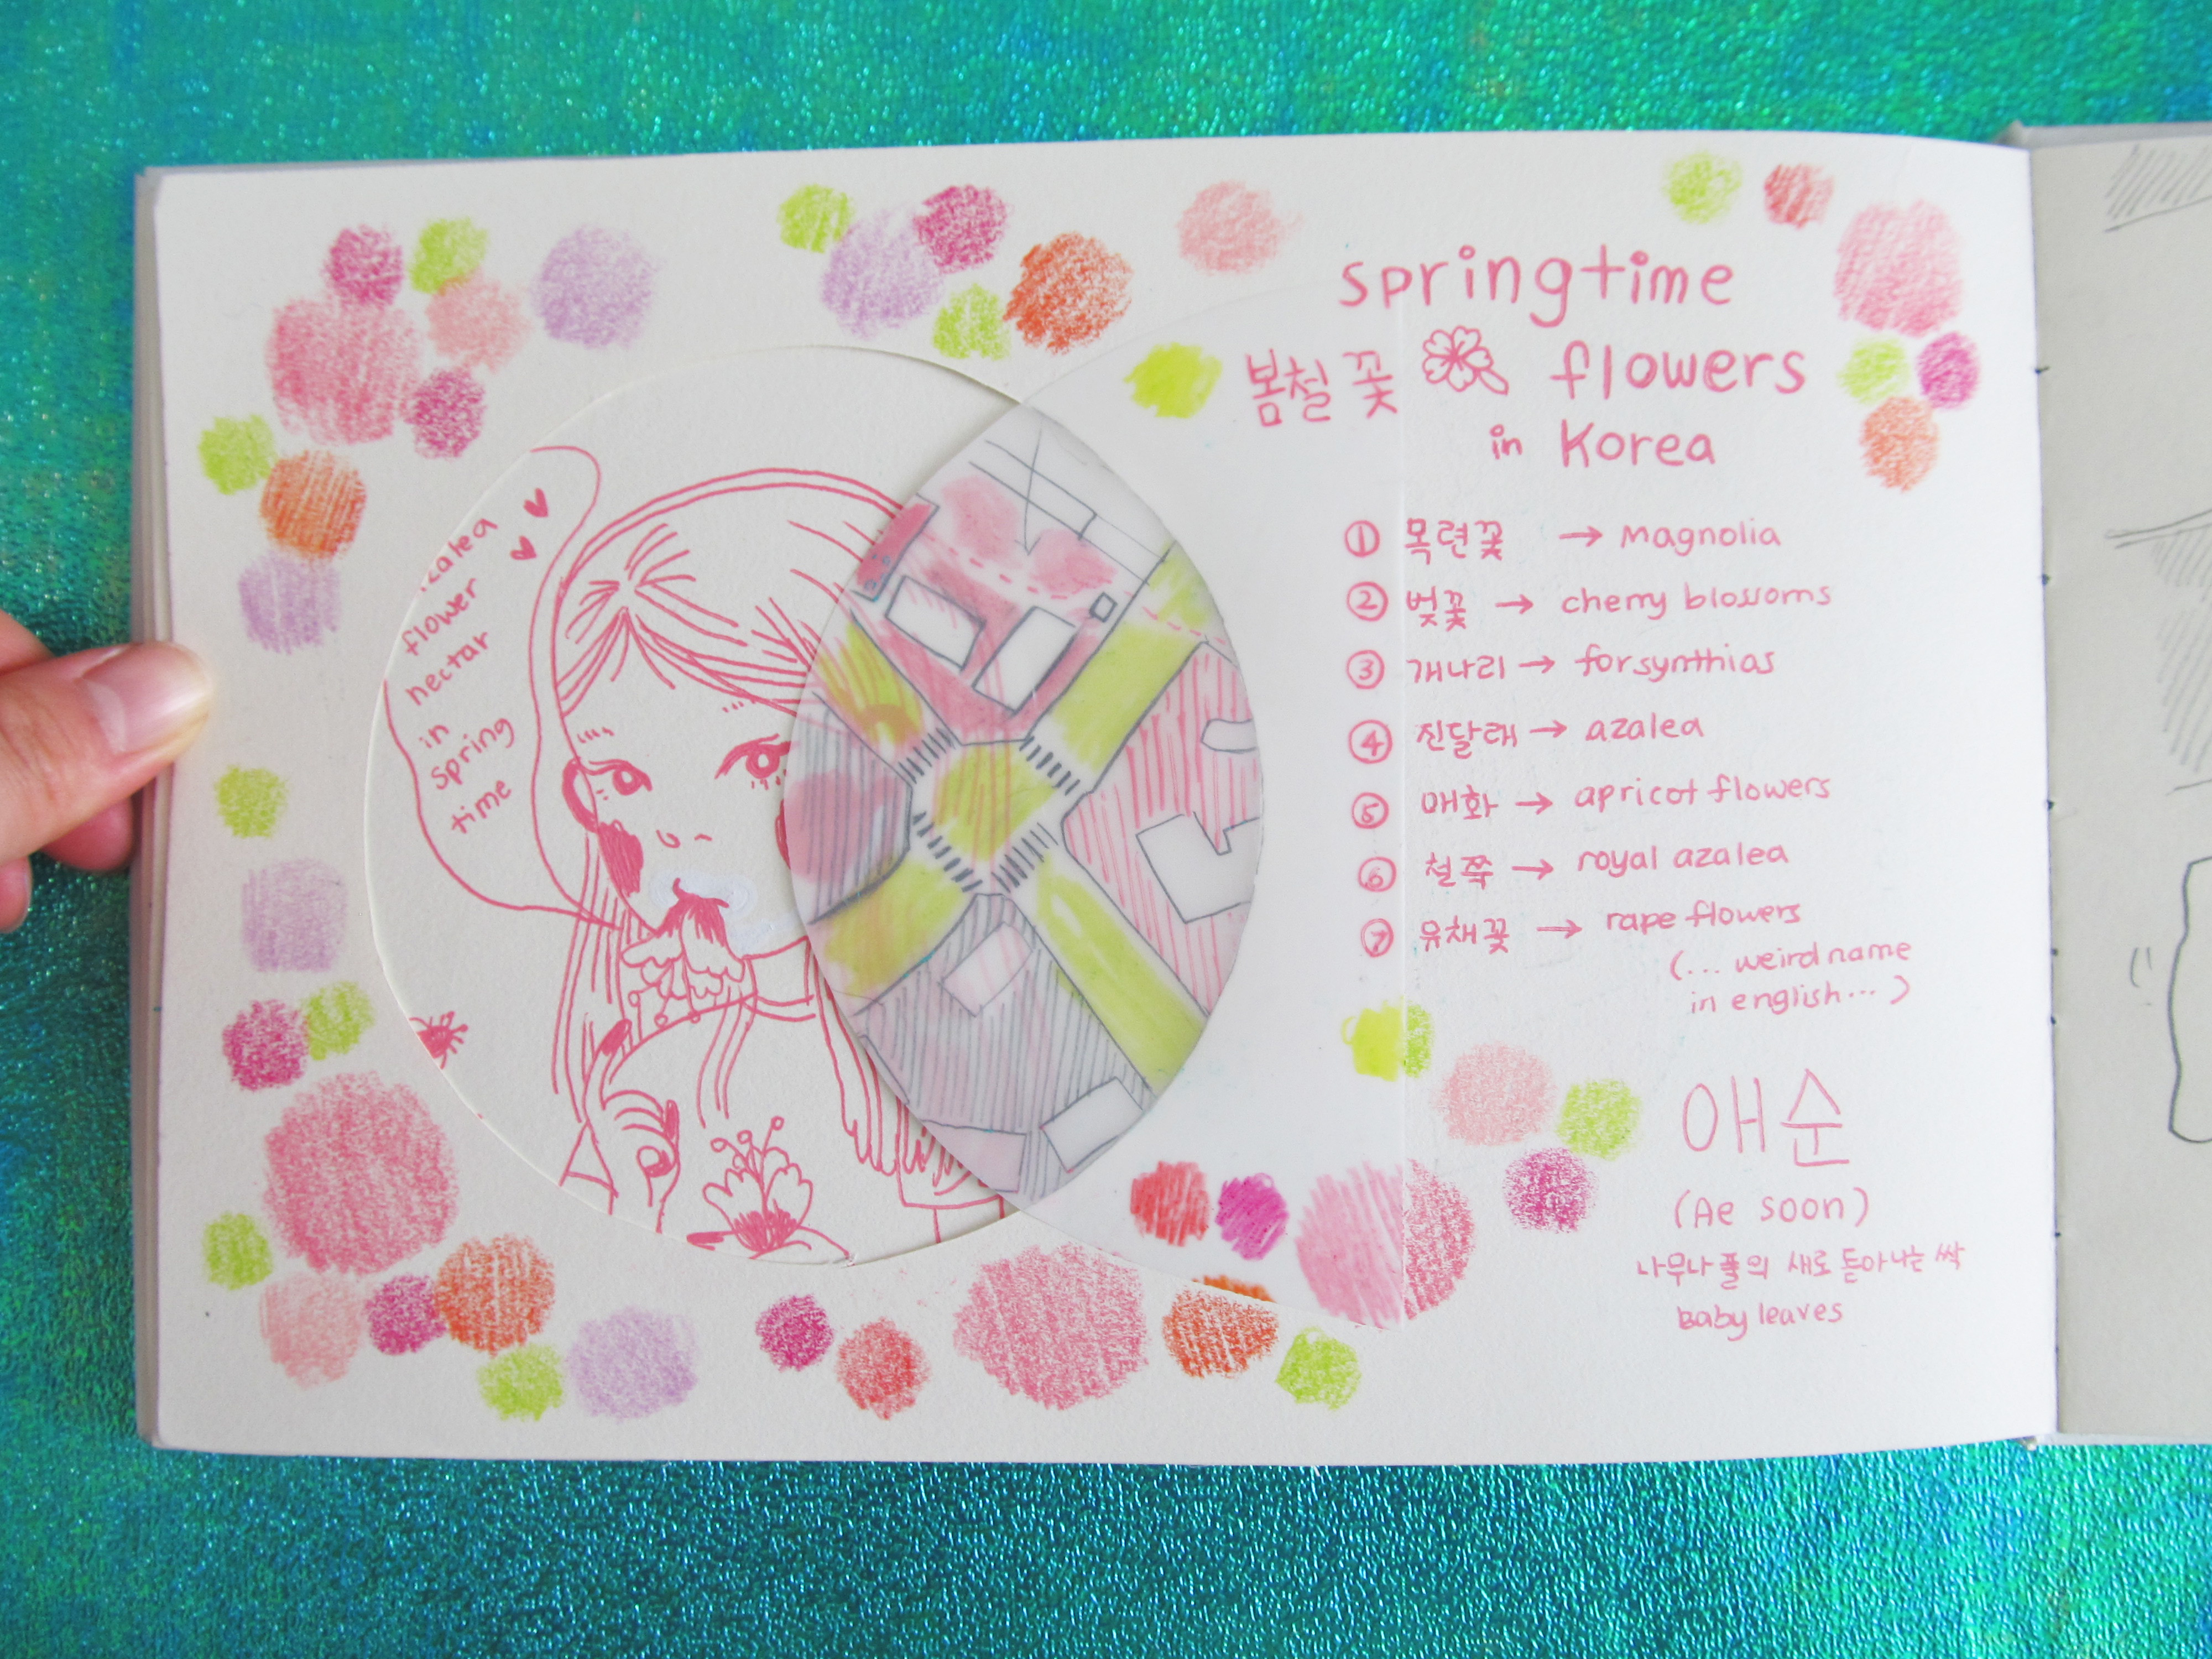 springtime
봄철 꽃 flowers
in Korea
① 목련꽃 → magnolia
② 벚꽃 → cherry blossoms
③ 개나리 → forsynthias
④ 진달래 → azalea
⑤ 매화 → apricot flowers
⑥ 철쭉 → royal azalea
⑦ 유채꽃 → rape flowers
(... weird name
in english... )
애순
(Ae soon)
나무나 풀의 새로 돋아나는 싹
baby leaves
azalea
flower
nectar
in
spring
time